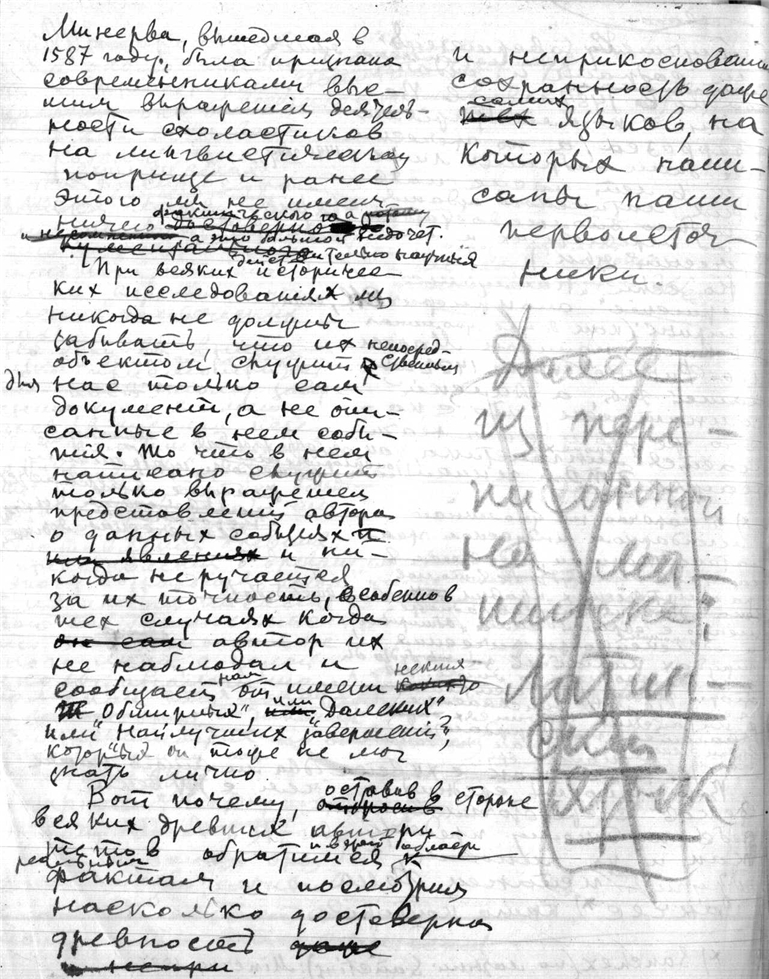 Минерва, вышедшая в
1587 году, была признана
современниками выс-
шим выражением деятель-
ности схоластиков
на лингвистическом
поприще и ранее
этого мы не имеем
ничего фактического
а это большой недочет.
действительно научных
При всяких историчес-
ких исследованиях мы
никогда не должны
забывать что их непосред-
объектом служит ственным
для нас только сам
документ, а не опи-
санные в нем собы-
тия. То что в нем
написано служит
только выражением
представлений автора
о данных событиях
или явлениях и ни-
когда не ручается
за их точность, особенно в
тех случаях когда
он сам автор их
не наблюдал и
сообщает нам от имени неких
"Обширных", или "Далеких"
или "Наилучших заверений",
которых он тоже не мог
знать лично.
Вот почему, оставив в стороне
отбросив
всяких древних автори-
тетов обратимся к
реальным
фактам и посмотрим
насколько достоверна
древность даже
и непри
и неприкосновенна
сохранность даже
самих
тех языков, на
которых напи-
саны наши
первоисточ-
ники
Далее
из пере-
писанной
на ма-
шинке:
Латин-
ский
язык